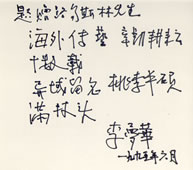 题赠给翁斯林先生
海外传艺 辛勤耕耘
十数载
异域留名 桃李半硕
满枝头
李梦华
一九九五年六月